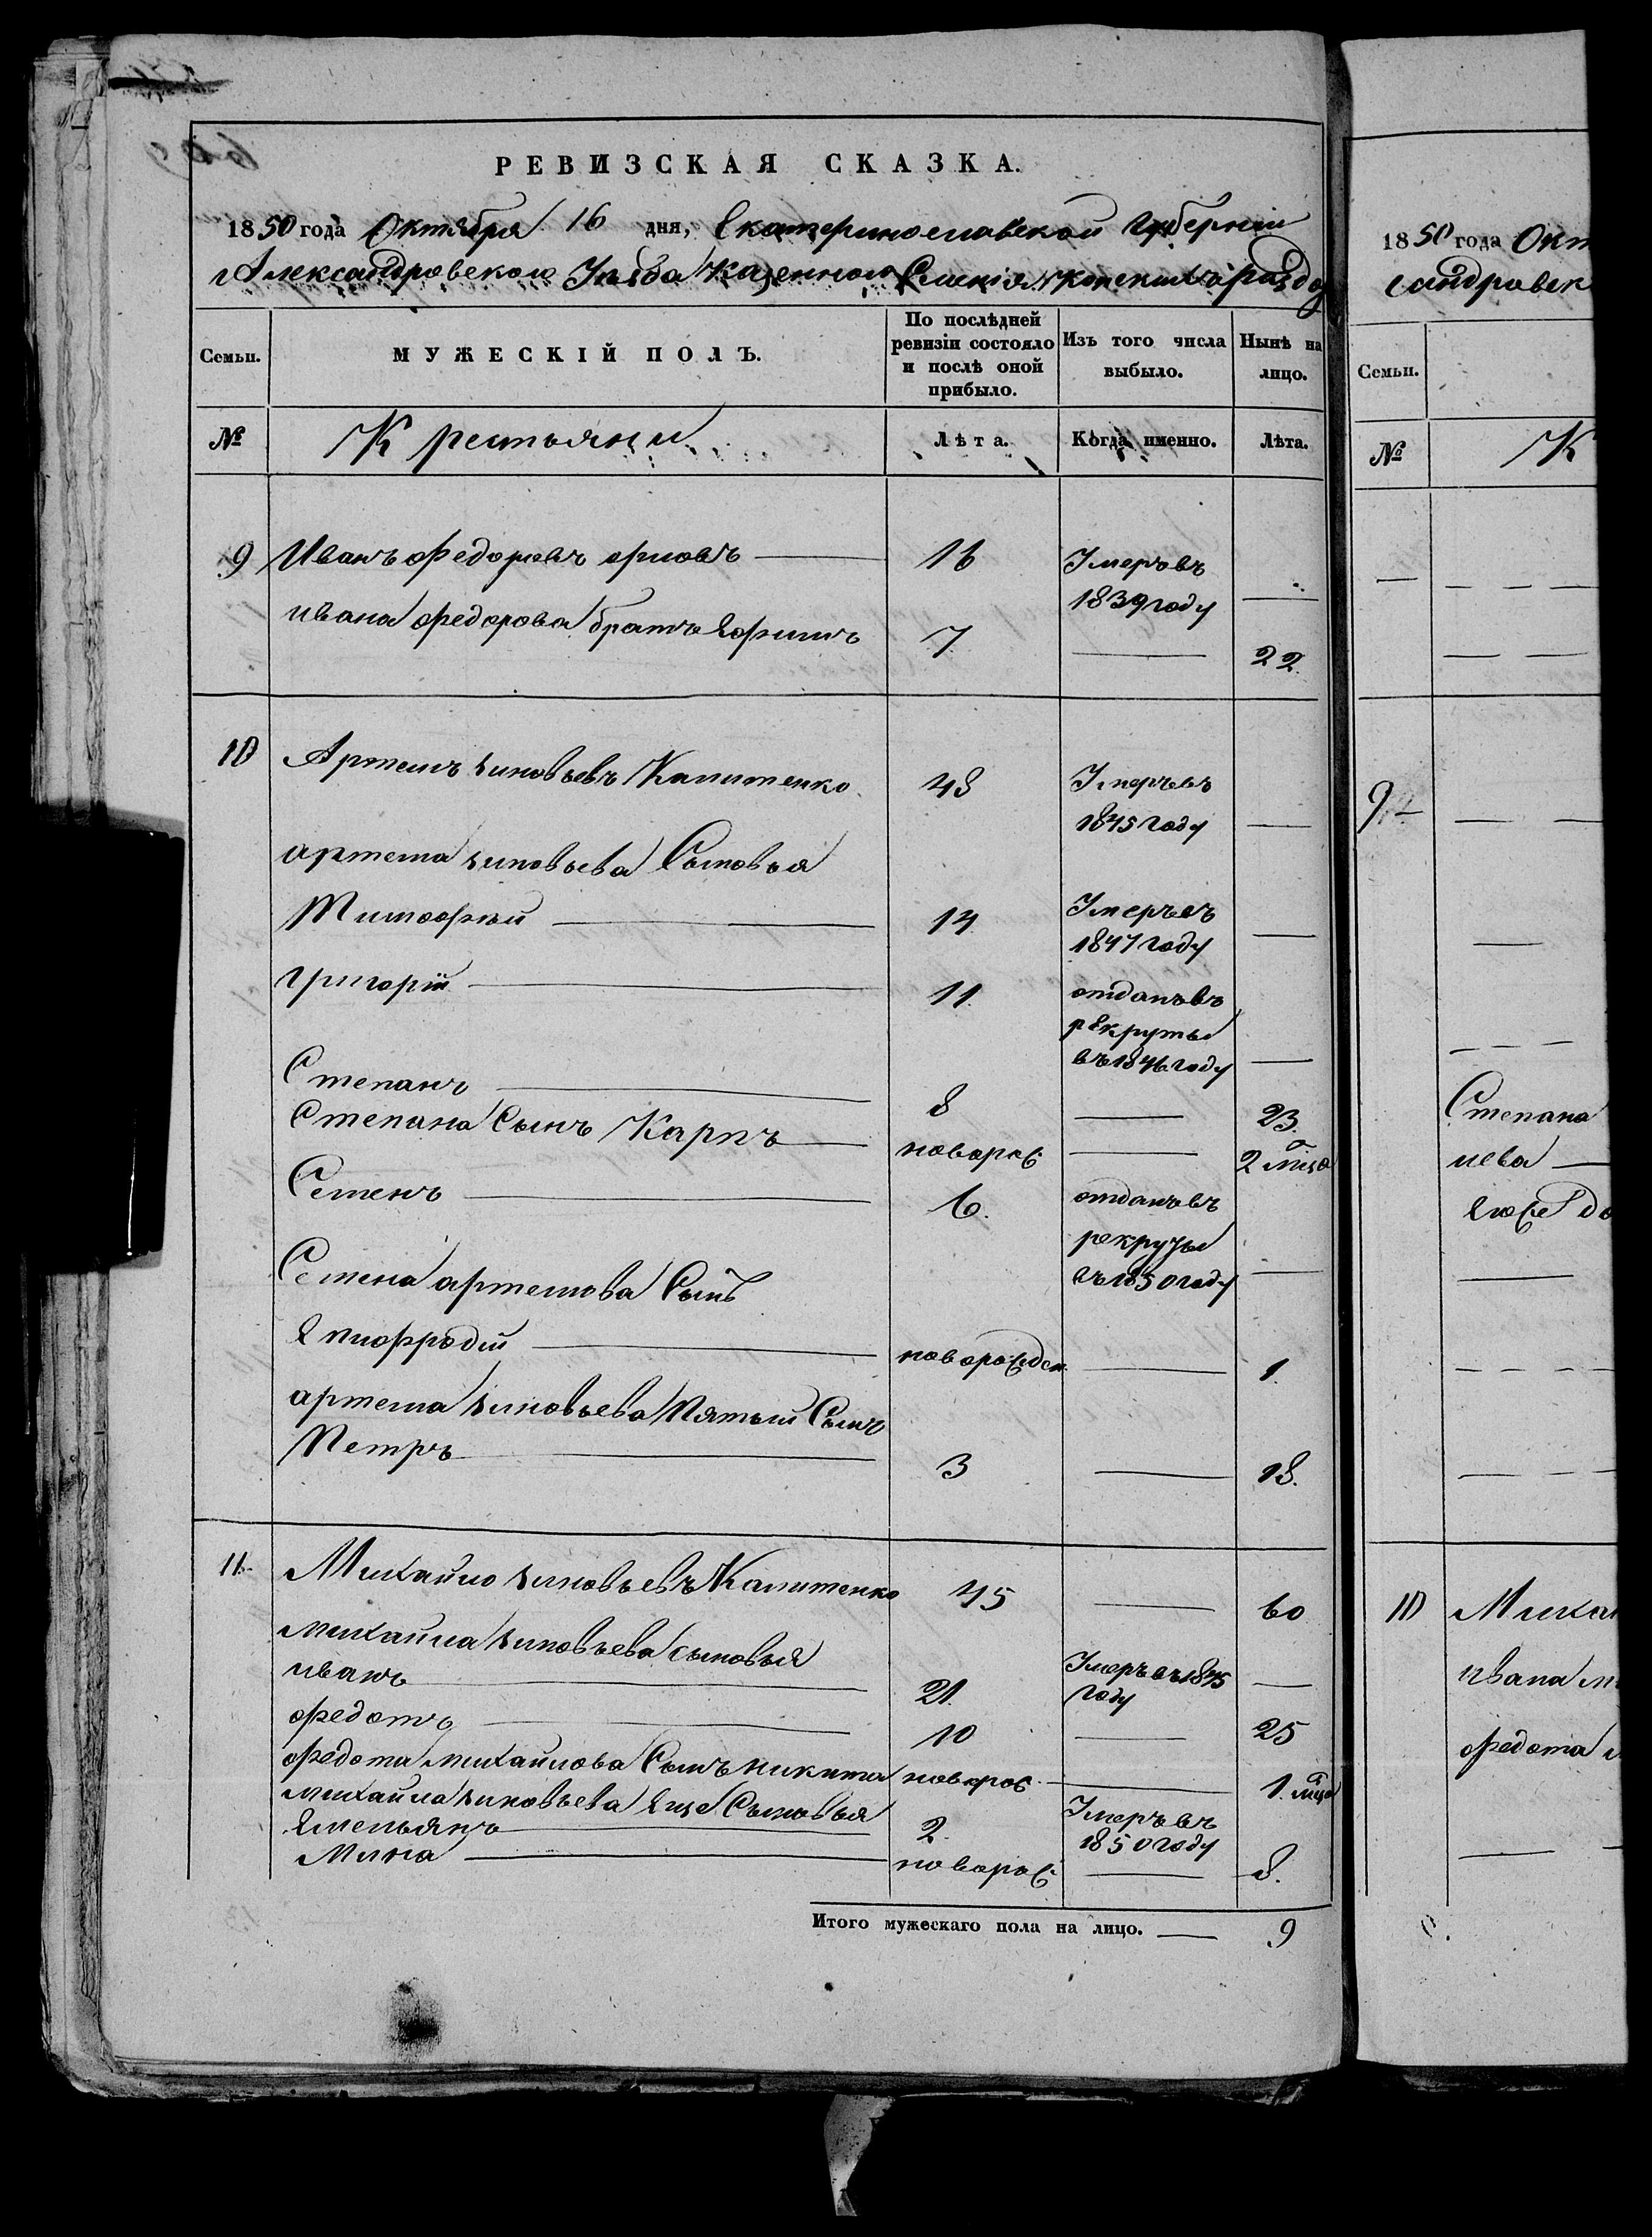 РЕВИЗСКАЯ СКАЗКА.
1850 года Октября 16 дня, Екатеринославской губернии
Александровского Уезда Казенного Селения Конских Раздо
Семьи. МУЖЕСКІЙ ПОЛЪ. По послѣдней ревизіи состояло и послѣ оной прибыло. Изъ того числа выбыло. Нынѣ на лицо.
№ Крестьяни Лѣта. Когда именно. Лѣта.
9 Иванъ Федоровъ 16 Умеръ въ
1839 году —
Ивана Федорова братъ Ефимъ 7 — 22.
10 Артемъ Зиновьевъ Капитенко 48 Умеръ въ
1845 году —
артема Зиновьева Сыновья
Тимофѣй — 14 Умеръ въ
1847 году —
григорій — 11. отданъ въ
рекруты
въ 1846 году —
Степанъ — 8 — 23.
Степана Сынъ Карпъ — поворож: — 2 мѣца
Семенъ — 6. отданъ въ
рекруты
въ 1850 году —
Семена артемова Сынъ
Епифродій — новорожден. — 1.
артема Зиновьева Пятый Сынъ
Петръ — 3 — 18.
11. Михайло Зиновьевъ Капитенко 45 — 60
михайла Зиновьева сыновья
иванъ — 21. Умеръ въ 1845
году —
федотъ — 10 — 25
федота михайлова Сынъ никита новорож — 1. мѣца
михайла Зиновьева Еще Сыновья
Емельянъ — 2. Умеръ въ
1850 году
Мина — новорож: — 8.
Итого мужескаго пола на лицо. — 9
1850 года Окт
сандровск
Семьи.
№ К
9.
Степана
лева —
Его же до
10 Михай
ивана м
федота м